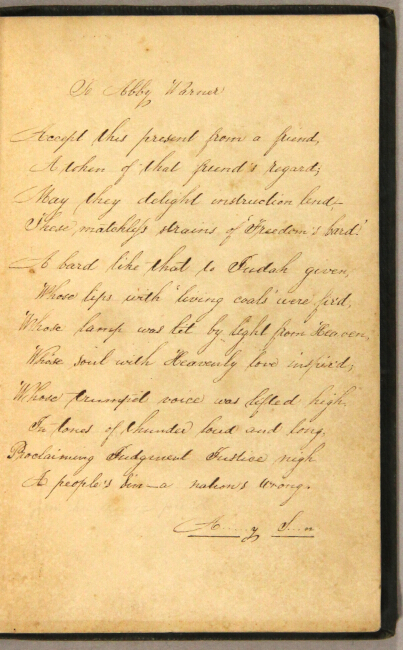 To Abby Warner
Accept this present from a friend,
A token of that friend's regard;
May they delight instruction lend—
These matchless strains of "Freedom's bard."
A bard like that to Judah given,
Whose lips with "living coals" were fir'd;
Whose lamp was let by light from Heaven,
Whose soul with Heavenly love inspir'd;
Whose trumpet voice was lifted high,
In tones of thunder loud and long,
Proclaiming Judgment Justice nigh
A people's sin—a nation's wrong.
H.....y S....n